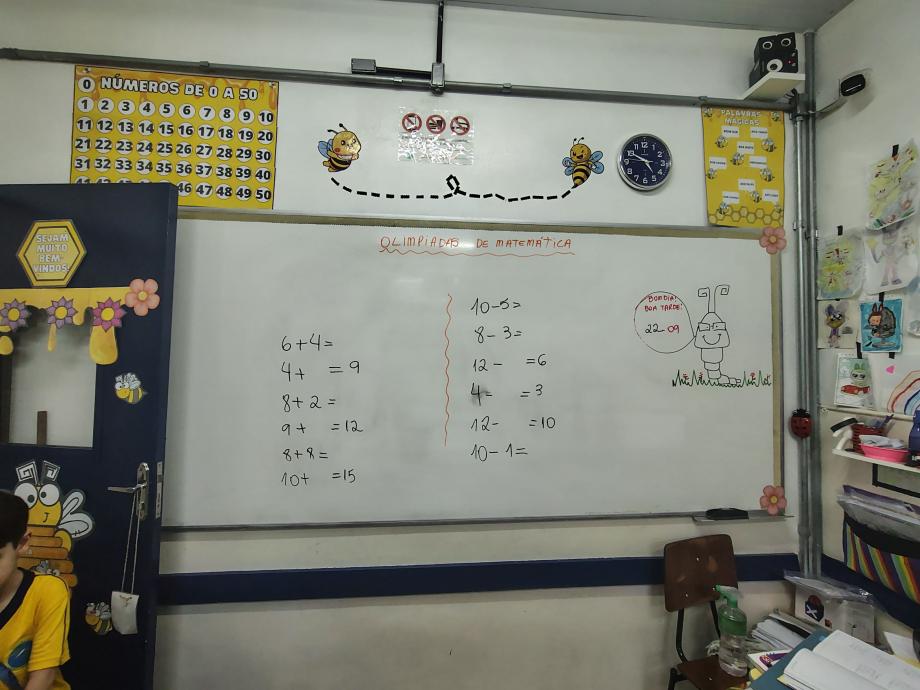 NÚMEROS DE 0 A 50
0
1 2 3 4 5 6 7 8 9 10
11 12 13 14 15 16 17 18 19 20
21 22 23 24 25 26 27 28 29 30
31 32 33 34 35 36 37 38 39 40
46 47 48 49 50
PALAVRAS
MÁGICAS
SEJAM
MUITO
BEM-
VINDOS!
OLIMPIADAS DE MATEMÁTICA
6+4=
4+ =9
8+2=
9+ =12
8+8=
10+ =15
10-5=
8-3=
12- =6
4- =3
12- =10
10-1=
BOM DIA!
BOA TARDE!
22-09